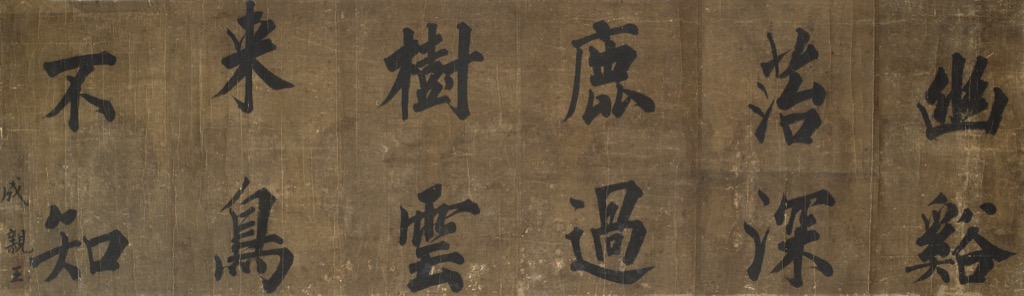 幽谿
菭深
鹿過
樹雲
来鳥
不知
成親王